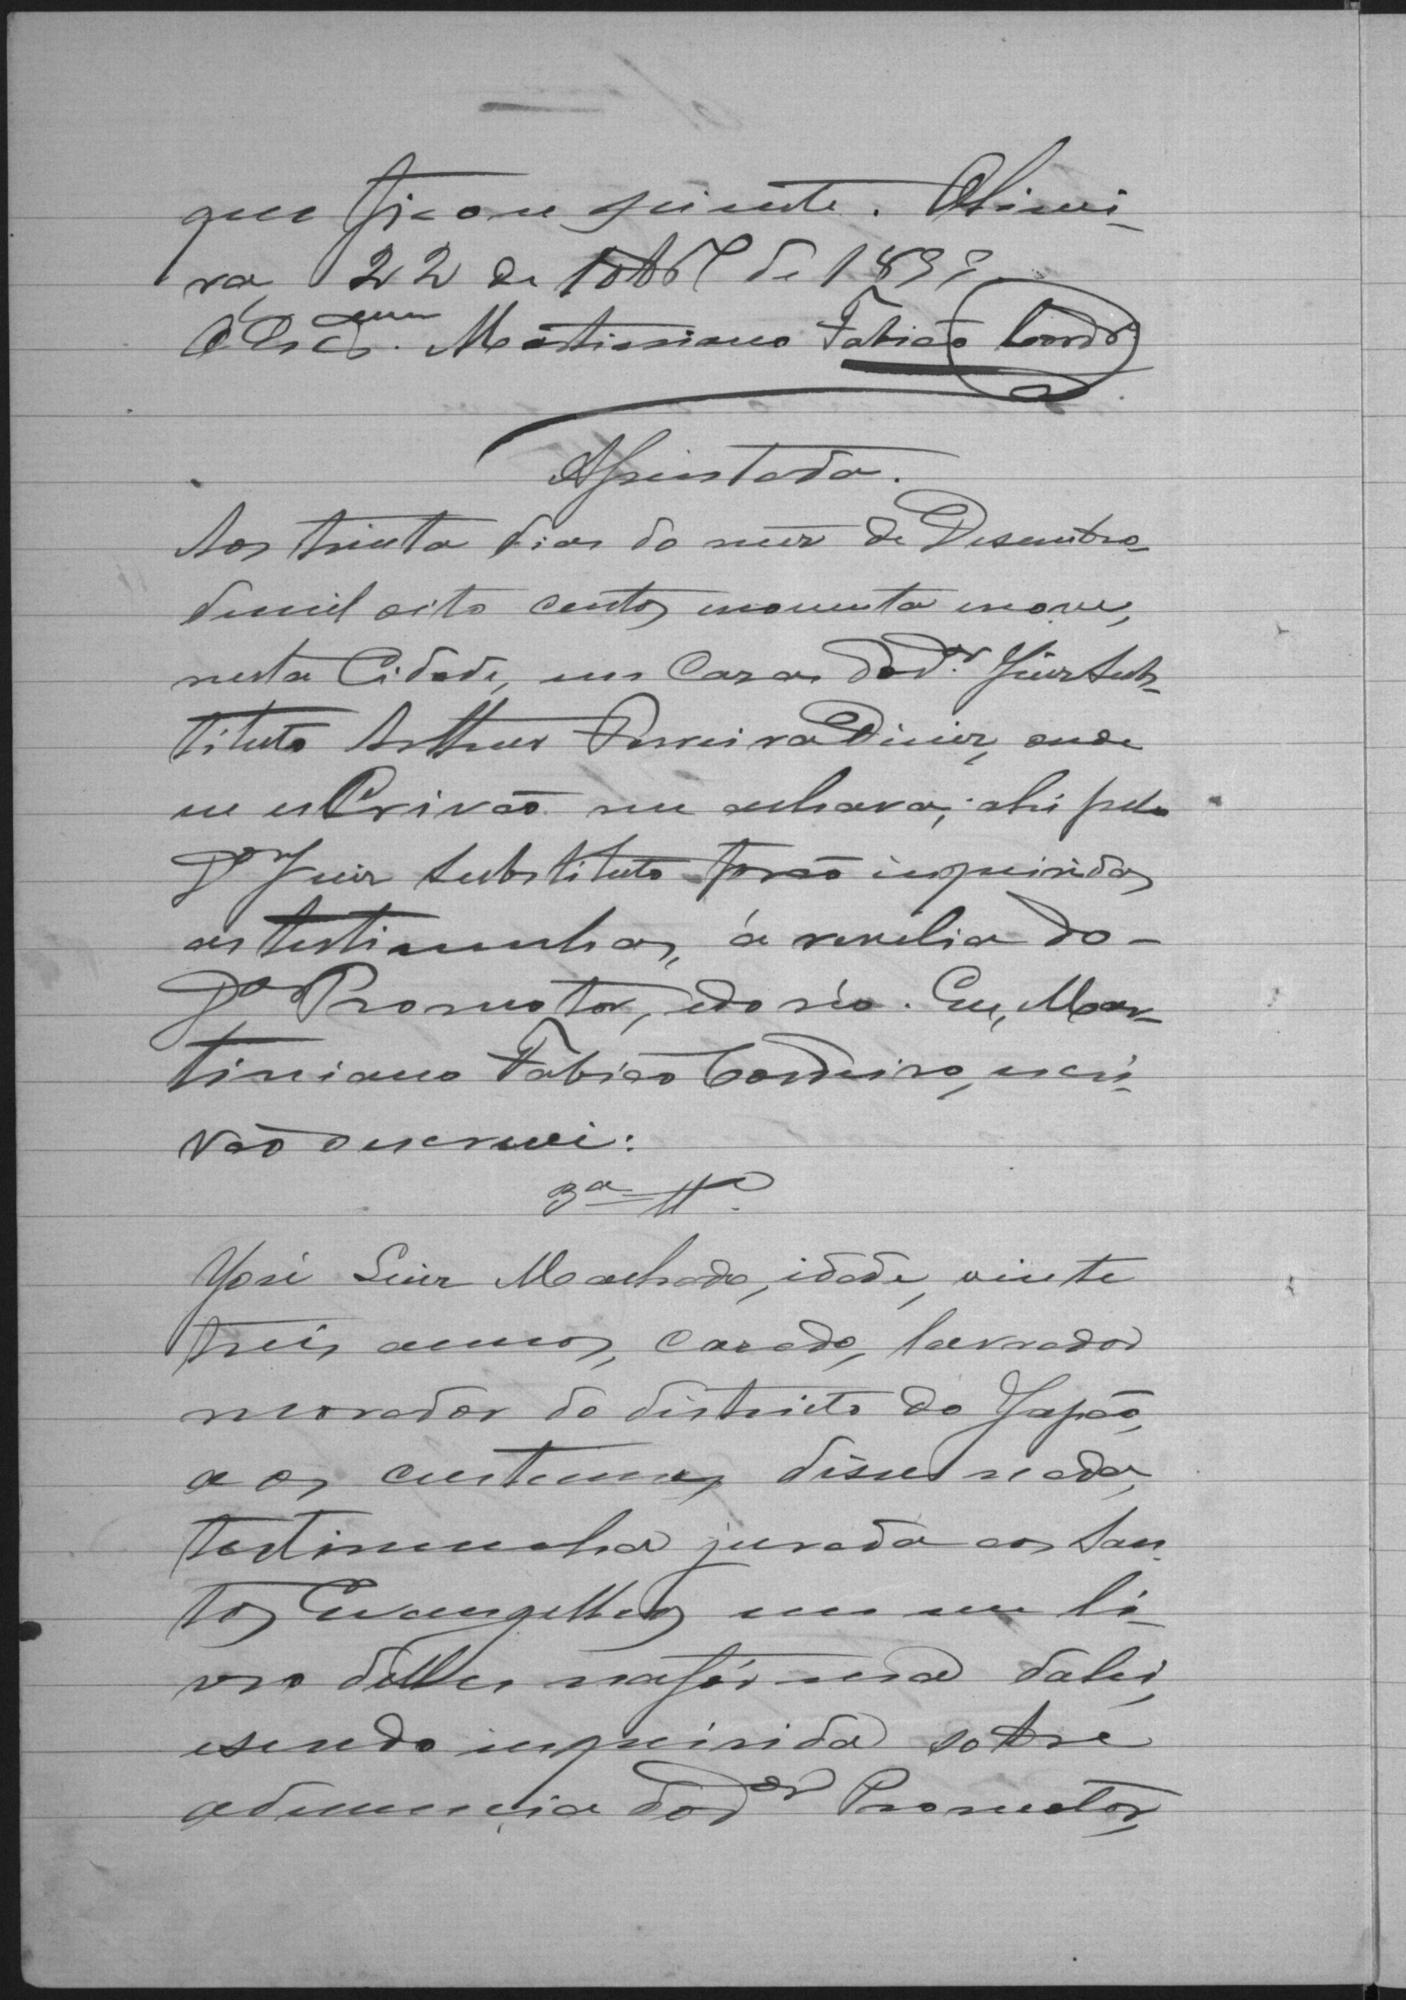 que ficou sciente. Oliveira
ra, 22 de 10bro de 1899.
O Escr.am Martiniano Fabião Cordro
Assentada.
Aos trinta dias do mez de Desembro
de mil oito centos noventa enove,
nesta Cidade, em Caza do d.or Juiz Subs-
tituto Arthur Ferreira Diniz, onde
eu esCrivão me achava; ahi pelo
D.or Juiz Substituto forão inquiridas
as testimunhas, á revelia do
D.or Promotor, edo réo. Eu, Mar-
tiniano Fabião Cordeiro, escri-
vão o escrevi:
3ª Tta.
José Luiz Machado, idade, vinte
treis annos, cazado, lavrador
morador do districto do Japão,
aos custumes disse nada,
testimunha jurada aos San
tos Evangelhos em um li-
vro delles nafórma dalei,
esendo inquirida sobre
adenuncia do d.or Promotor,